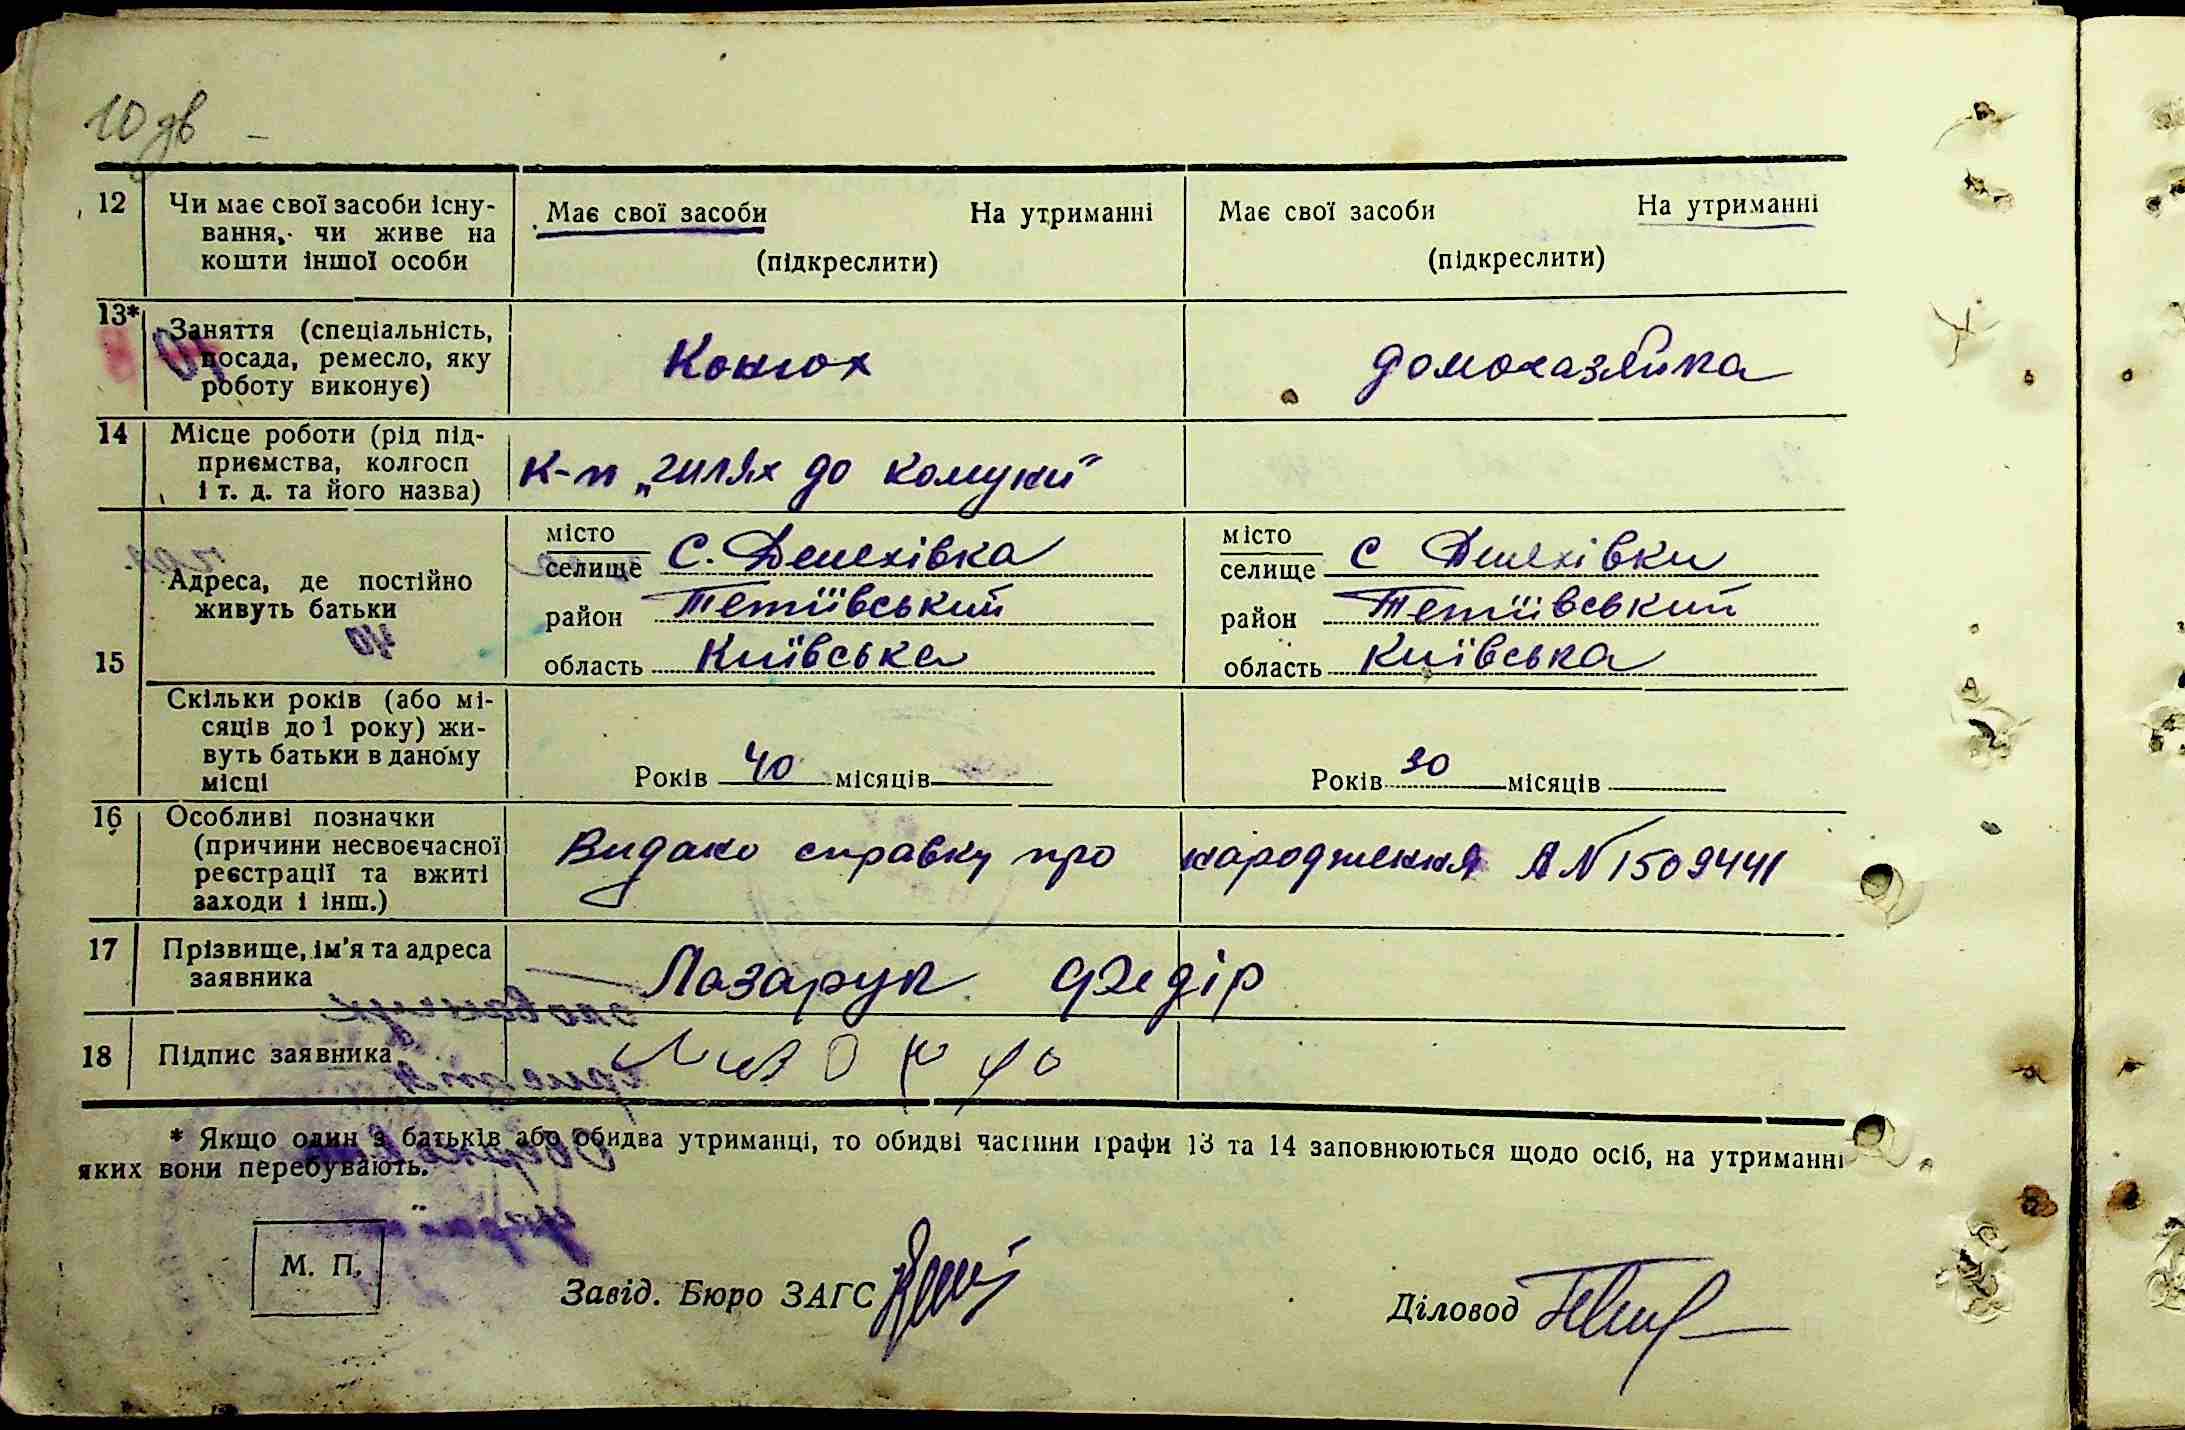 10 дв
12 Чи має свої засоби існу- Має свої засоби На утриманні Має свої засоби На утриманні
вання, чи живе на
кошти іншої особи (підкреслити) (підкреслити)
13* Заняття (спеціальність,
посада, ремесло, яку Конюх домохазяйка
роботу виконує)
14 Місце роботи (рід під-
приємства, колгосп К-п „шлях до комуни"
і т. д. та його назва)
місто місто
селище С. Денехівка селище С Денехівки
15 Адреса, де постійно
живуть батьки район Тетіївський район Тетіївський
область Київська область Київська
Скільки років (або мі-
сяців до 1 року) жи-
вуть батьки в даному
місці Років 40 місяців Років 30 місяців
16 Особливі позначки
(причини несвоєчасної Видано справку про народження А № 1509441
реєстрації та вжиті
заходи і інш.)
17 Прізвище, ім'я та адреса
заявника Лазарук Федір
18 Підпис заявника
* Якщо один з батьків або обидва утриманці, то обидві частини графи 13 та 14 заповнюються щодо осіб, на утриманні
яких вони перебувають.
М. П.
Завід. Бюро ЗАГС Діловод